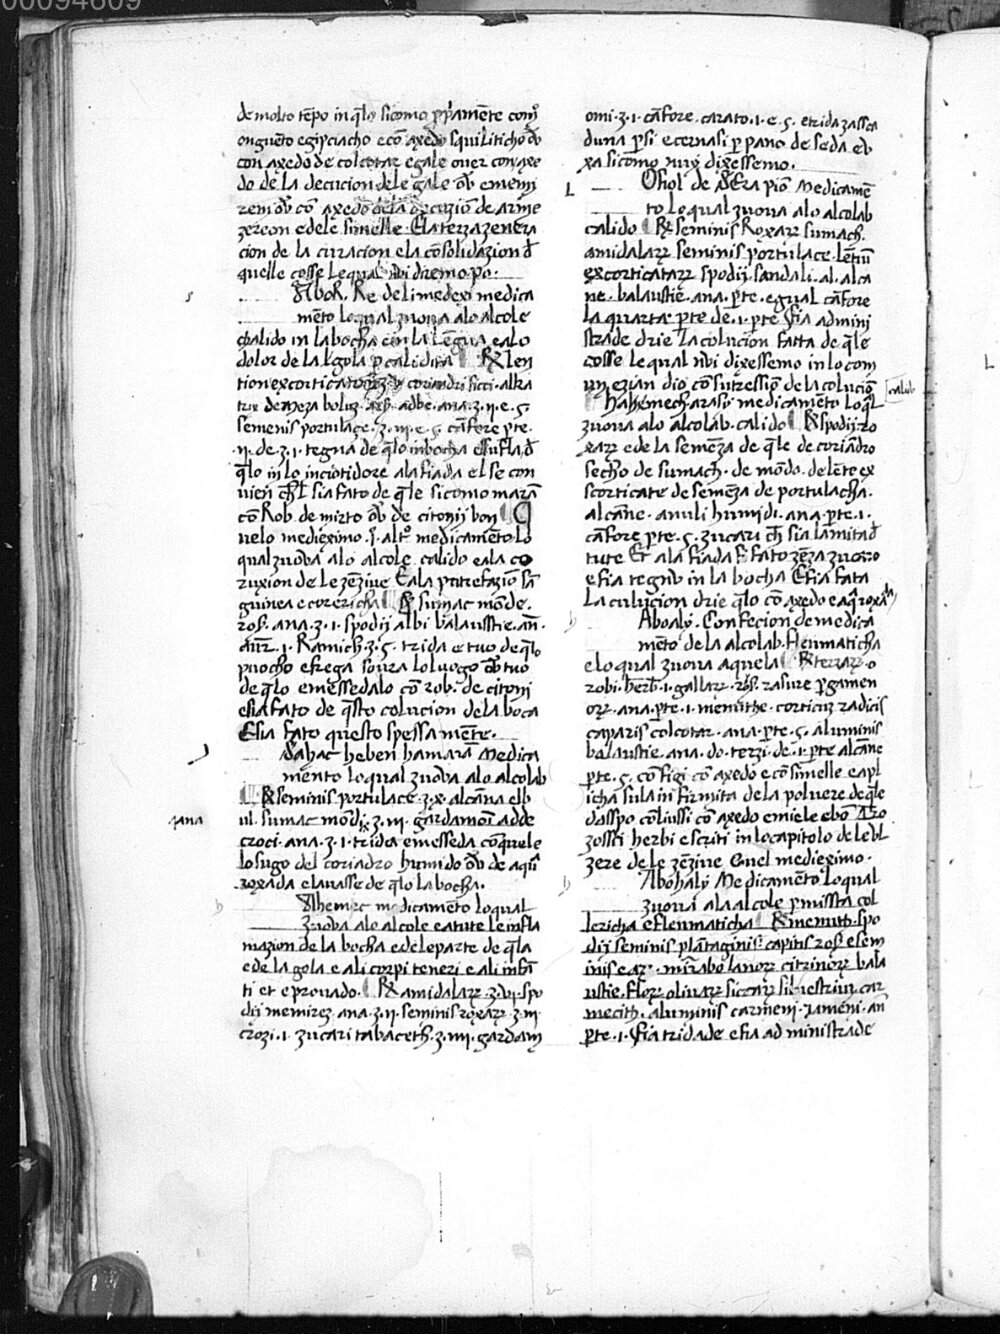 00094609
de molto tẽpo in q̃lo sicomo ꝓp̃amẽte com̃
onguẽto egipciacho e cõ axedo squiliticho oṽ
con axedo de colcotar e gale over con axe
do de la decucion de le gale oṽ e memi
rem oṽ cõ axedo de la decuzion de arme
zereon e de le simelle. E la terza zenera
cion de la curacion e la cõsolidazion d̃
quelle cosse le qual nui diremo po.
Abor. Re de li medexi medica
mẽto lo qual zuova alo alcole
chalido in la bocha e in la lengua e alo
dolor de la gola p calidita ℞ len
tion excorticato coriandri sicci. alka
semenis portulace. ʒ. iii. e. s. cãfore pte.
ii. de. ʒ. i. tegna de q̃lo in bocha e sufla d̃
q̃lo in lo inciotidore ala fiada el se con
vien ch̃l sia fato de q̃le sicomo marã
cõ Rob. de mirto oṽ de citonij bon Q
uelo medeximo. i. altº medicamẽto lo
qual zuova alo alcole calido e ala co
ruxion de le zẽzive E ala putrefazion sã
guinea e corericha ℞ sumac mõde.
ros. ana. ʒ. i. spodij albi balaustie. an.
ʒ. i. Ramich. ʒ. s. trida e tuo de q̃lo
puocho e frega soura lo luogo oṽ tuo
de q̃lo e messedalo cõ rob. de citonj
e sia fato de q̃sto colucion de la boca
E sia fato questo spessa mẽte.
Sahac heben hamarã Medica
mento lo qual zuoba alo alcolab
℞ seminis portulace. ʒ. x. alcãna elb
ul. sumac mõdi. ʒ. iii. gardamõi adde
croci. ana. ʒ. i. trida e messeda cõ quele
lo sugo del coriadro humido oṽ de aqũ
roxada e lavasse de q̃lo la bocha.
Ahemec medicamẽto lo qual
zuoba alo alcole e a tute le infla
mazion de la bocha e de le parte de q̃la
e de la gola e ali corpi teneri e ali infã
ti et e provado. ℞ amidalaꝝ. ʒ. vi. spo
dij memirez. ana. ʒ. ii. seminis roxaꝝ. ʒ. iii.
crozi. i. zucari tabaceth. ʒ. iiii. gardam
omi. ʒ. i. cãfore. carato. i. e. s. e trida zassca
duna p si e cernasi p pano de seda e u
xa sicomo nuy dixessemo.
Ohol de Sera pion Medicamẽ
to lo qual zuova alo alcolab
calido ℞ seminis Roxaꝝ sumach.
amidalaꝝ seminis portulace. lentiũ
excorticataꝝ spodij sandali. al. alca
ne. balaustie. ana. pte. egual cãfore
la quarta pte de. i. pte sia admini
strade drie la colucion fatta de q̃le
cosse le qual nui dixessemo in lo com
un ezian dio cõ sutzession de la colucion
calido
Hahemecharasi medicamẽto lo q̃l
zuova alo alcolab. calido ℞ spodij ro
xaꝝ e de la semẽza de q̃le de coriãdro
secho de sumach. de mõdo. de lẽte ex
scorticate de semẽza de portulacha.
alcãne. anuli humidi. ana. pte. i.
cãfore pte. s. zucari ch̃ sia la mitad
tute Et ala fiada e fato zẽza zucaro
e sia tegnu in la bocha E sia fata
la culucion drie q̃lo cõ axedo e aq̃ roxada
Aboaly. Confecion de medica
mẽto de la alcolab. fleumaticha
e lo qual zuova a quela ℞ terraꝝ. o
robi. herb. i. gallaꝝ. ros. rasure pgamen
oꝝ. ana. pte. i. menuthe. corticuz radicis
caparis colcotar. ana. pte. s. aluminis
balaustie. ana. do. terzi. de. i. pte alcãne
pte. s. confizi cõ axedo e cõ simelle e apl
icha sula infirmita de la polvere de q̃le
zossti herbi e scriti in lo capitolo de le bl
zere de le zẽzive E nel medeximo.
Abohaly Medicamẽto lo qual
zuova ala alcole p missta col
lericha e fleumaticha ℞ menuth. spo
dij seminis plãtaginis. capitis ros. e sem
inis eaꝝ. mirabolanoꝝ citrinoꝝ bala
ustie. floꝝ olivaꝝ siccaꝝ silvestriuꝝ car
mecith. aluminis carmeni. iameni. añ
pte. i. sia tridade e sia administrade